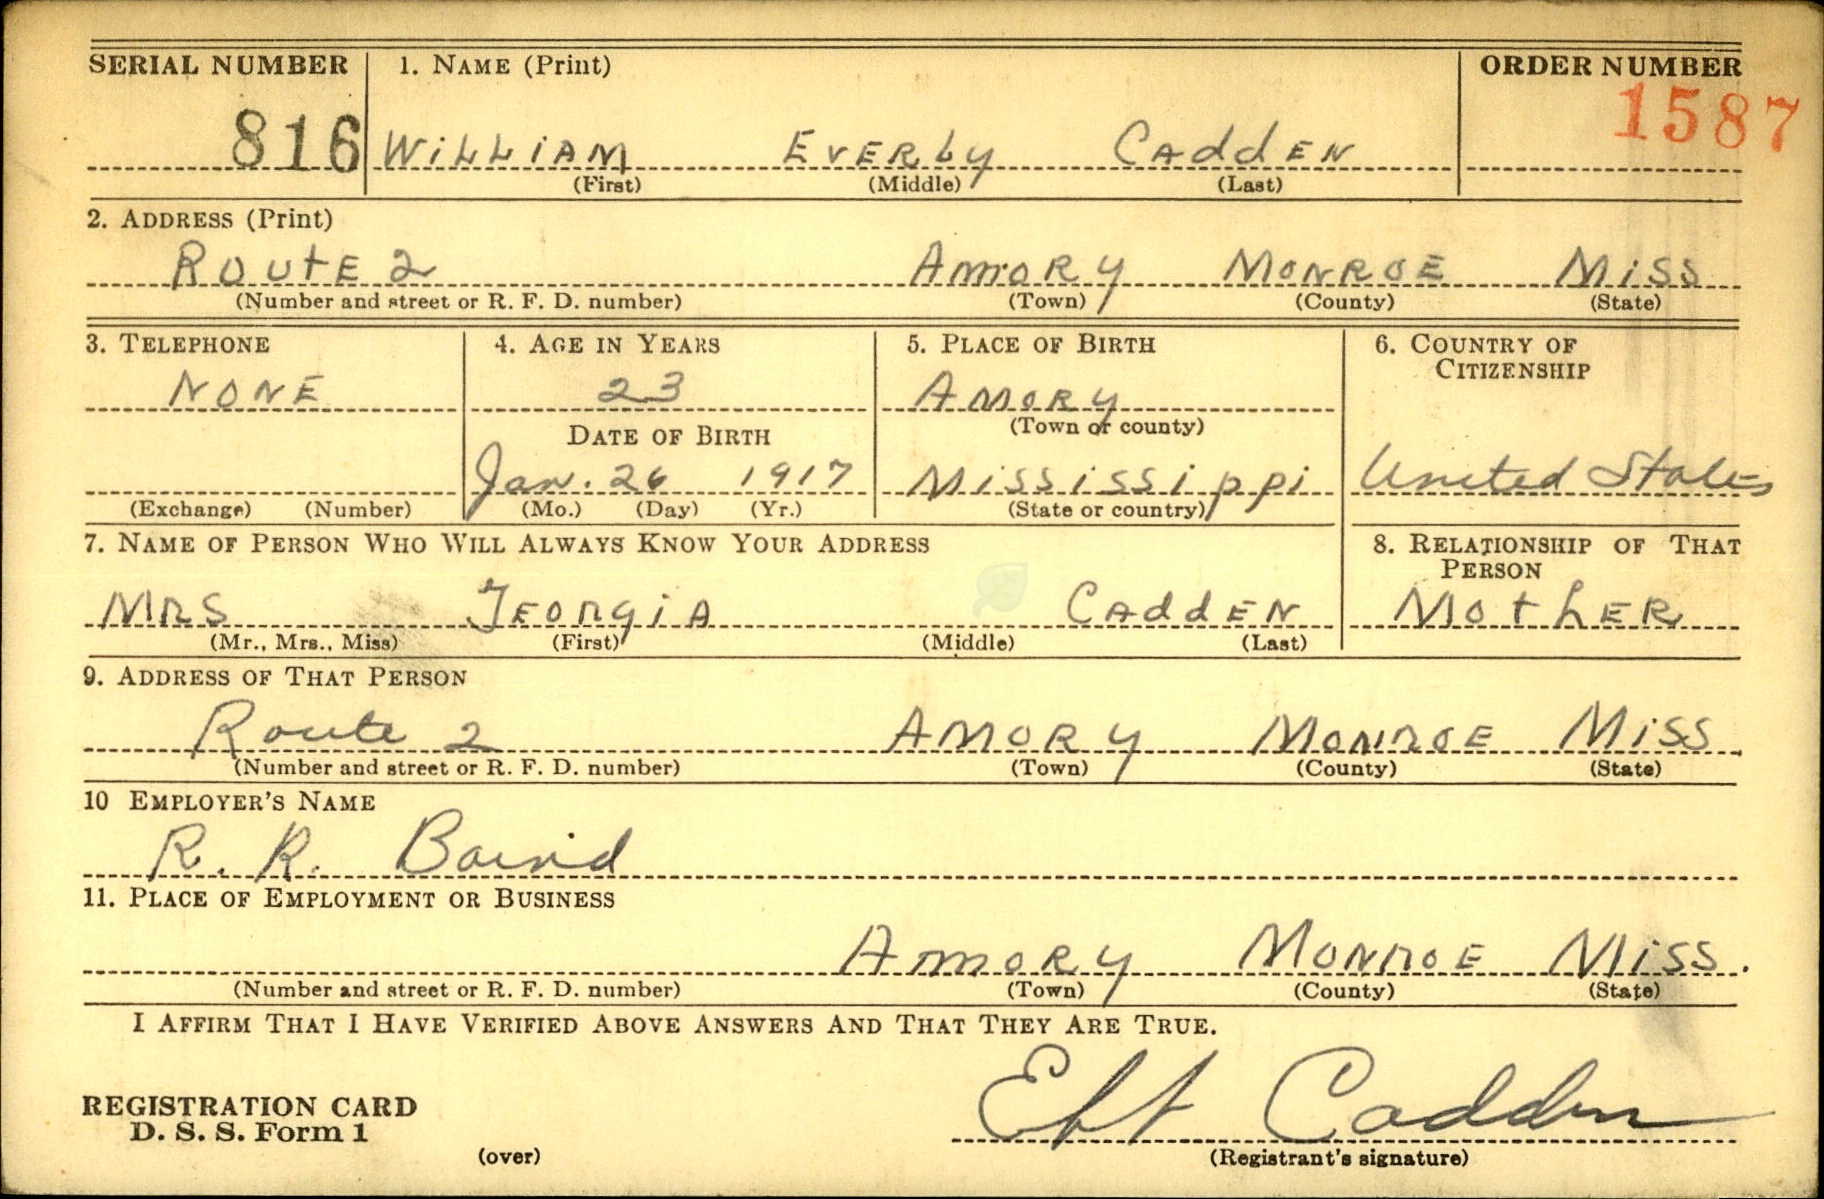 SERIAL NUMBER 1. NAME (Print) ORDER NUMBER
816 WiLLiAM EvERLy CAddEN 1587
(First) (Middle) (Last)
2. ADDRESS (Print)
ROUtE 2 AmORy MONROE MiSS
(Number and street or R. F. D. number) (Town) (County) (State)
3. TELEPHONE 4. AGE IN YEARS 5. PLACE OF BIRTH 6. COUNTRY OF CITIZENSHIP
NONE 23 AMORy
(Town or county)
DATE OF BIRTH
Jan. 26 1917 MiSSiSSippi United States
(Exchange) (Number) (Mo.) (Day) (Yr.) (State or country)
7. NAME OF PERSON WHO WILL ALWAYS KNOW YOUR ADDRESS 8. RELATIONSHIP OF THAT PERSON
MRS GEORgiA CAddEN MOthER
(Mr., Mrs., Miss) (First) (Middle) (Last)
9. ADDRESS OF THAT PERSON
Route 2 AMORy MONROE MiSS.
(Number and street or R. F. D. number) (Town) (County) (State)
10 EMPLOYER'S NAME
R. R. Baird
11. PLACE OF EMPLOYMENT OR BUSINESS
AmORy MONROE MiSS.
(Number and street or R. F. D. number) (Town) (County) (State)
I AFFIRM THAT I HAVE VERIFIED ABOVE ANSWERS AND THAT THEY ARE TRUE.
Cadden
REGISTRATION CARD
D. S. S. Form 1
(over) (Registrant's signature)